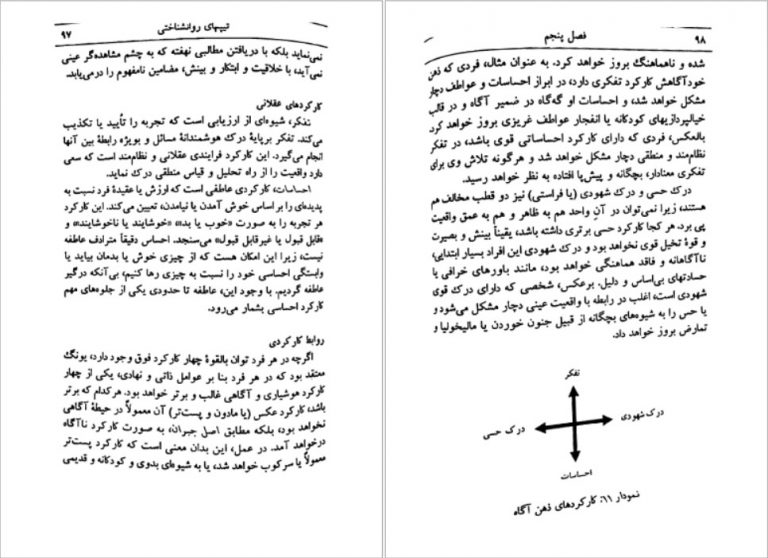 تیپ‌های روانشناختی
۹۷
نمی‌نماید بلکه با دریافتن مطالبی نهفته که به چشم مشاهده‌گر عینی
نمی‌آید، با خلاقیت و ابتکار و بینش، مضامین نامفهوم را درمی‌یابد.
کارکردهای عقلانی
تفکر، شیوه‌ای از ارزیابی است که تجربه را تأیید یا تکذیب
می‌کند. تفکر برپایهٔ درک هوشمندانهٔ مسائل و بویژه رابطهٔ بین آنها
انجام می‌گیرد. این کارکرد فرایندی عقلانی و نظام‌مند است که سعی
دارد واقعیت را از راه تحلیل و قیاس منطقی درک نماید.
احساسات، کارکردی عاطفی است که ارزش یا عقیدهٔ فرد نسبت به
پدیده‌ای را براساس خوش آمدن یا نیامدن، تعیین می‌کند. این کارکرد
هر تجربه را به صورت «خوب یا بد» «خوشایند یا ناخوشایند» و
«قابل قبول یا غیرقابل قبول» می‌سنجد. احساس دقیقاً مترادف عاطفه
نیست، زیرا این امکان هست که از چیزی خوش یا بدمان بیاید یا
وابستگی احساسی خود را نسبت به چیزی رها کنیم، بی‌آنکه درگیر
عاطفه گردیم. با وجود این، عاطفه تا حدودی یکی از جلوه‌های مهم
کارکرد احساسی بشمار می‌رود.
روابط کارکردی
اگرچه در هر فرد توان بالقوهٔ چهار کارکرد فوق وجود دارد، یونگ
معتقد بود که در هر فرد بنا بر عوامل ذاتی و نهادی، یکی از چهار
کارکرد هوشیاری و آگاهی غالب و برتر خواهد بود. هرکدام که برتر
باشد، کارکرد عکس (یا مادون و پست‌تر) آن معمولاً در حیطهٔ آگاهی
نخواهد بود، بلکه مطابق اصل جبران، به صورت کارکرد ناآگاه
درخواهد آمد. در عمل، این بدان معنی است که کارکرد پست‌تر
معمولاً یا سرکوب خواهد شد، یا به شیوه‌ای بدوی و کودکانه و قدیمی
۹۸
فصل پنجم
شده و ناهماهنگ بروز خواهد کرد. به عنوان مثال، فردی که ذهن
خودآگاهش کارکرد تفکری دارد، در ابراز احساسات و عواطف دچار
مشکل خواهد شد، و احساسات او گه‌گاه در ضمیر آگاه و در قالب
خیالپردازیهای کودکانه یا انفجار عواطف غریزی بروز خواهد کرد.
بالعکس، فردی که دارای کارکرد احساساتی قوی باشد، در تفکر
نظام‌مند و منطقی دچار مشکل خواهد شد و هرگونه تلاش وی برای
تفکری معنادار، بچگانه و پیش‌پا افتاده به نظر خواهد رسید.
درک حسی و درک شهودی (یا فراستی) نیز دو قطب مخالف هم
هستند، زیرا نمی‌توان در آنِ واحد هم به ظاهر و هم به عمق واقعیت
پی برد. هر کجا کارکرد حسی برتری داشته باشد، یقیناً بینش و بصیرت
و قوهٔ تخیل قوی نخواهد بود و درک شهودی این افراد بسیار ابتدایی،
ناآگاهانه و فاقد هماهنگی خواهد بود، مانند باورهای خرافی یا
حسادتهای بی‌اساس و دلیل. برعکس، شخصی که دارای درک قوی
شهودی است، اغلب در رابطه با واقعیت عینی دچار مشکل می‌شود و
یا حس را به شیوه‌های بچگانه از قبیل جنون خوردن یا مالیخولیا و
تمارض بروز خواهد داد.
تفکر
درک شهودی
درک حسی
احساسات
نمودار ۱۱: کارکردهای ذهن آگاه